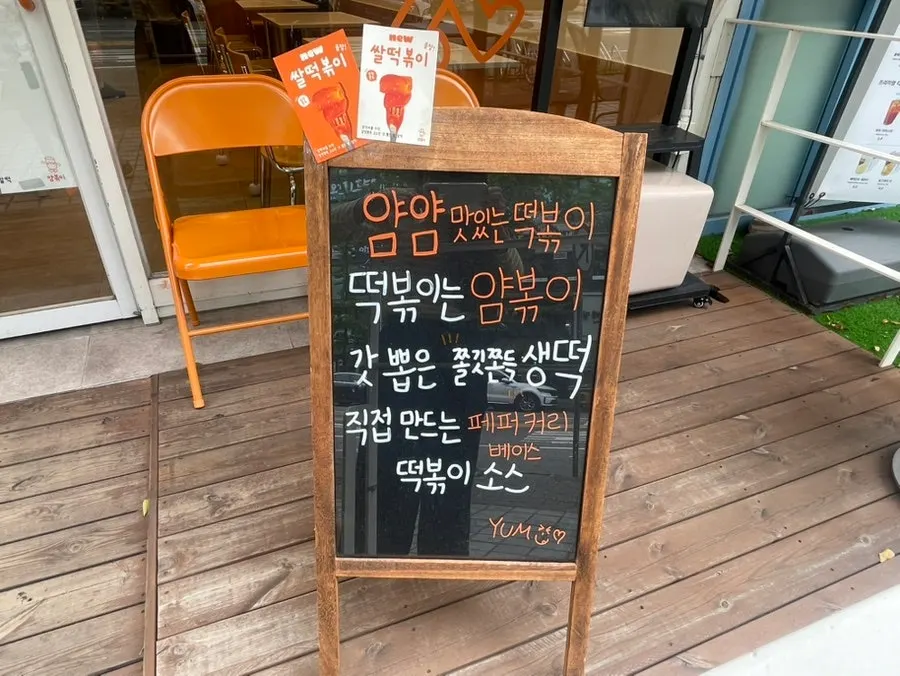 new
쌀떡볶이
new
쌀떡볶이
얌얌 맛있는 떡볶이
떡볶이는 얌볶이
갓 뽑은 쫄깃쫀득 생떡
직접 만드는 페퍼 커리
베이스
떡볶이 소스
YUM